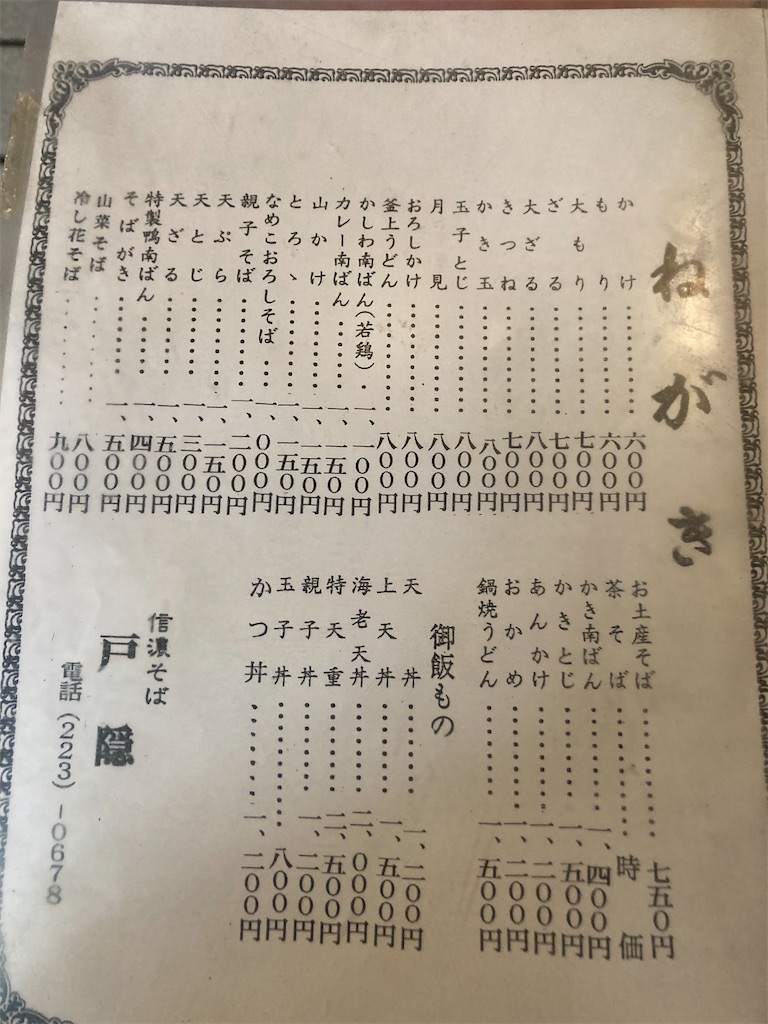 ねがき
かけ…………六〇〇円
もり…………六〇〇円
大もり…………七〇〇円
ざる…………七〇〇円
大ざる…………八〇〇円
きつね…………七〇〇円
かき玉…………八〇〇円
玉子とじ…………八〇〇円
月見…………八〇〇円
おろしかけ…………八〇〇円
釜上うどん…………八〇〇円
かしわ南ばん（若鶏）…一、一〇〇円
カレー南ばん…………一、一五〇円
山かけ…………一、一五〇円
とろゝ…………一、一五〇円
なめこおろしそば…一、〇〇〇円
親子そば…………一、二〇〇円
天ぷら…………一、一五〇円
天とじ…………一、三〇〇円
天ざる…………一、五〇〇円
特製鴨南ばん…………一、四〇〇円
そばがき…………一、五〇〇円
山菜そば…………八〇〇円
冷し花そば…………九〇〇円
お土産そば…………七五〇円
茶そば…………時価
かき南ばん…………一、四〇〇円
かきとじ…………一、五〇〇円
あんかけ…………一、二〇〇円
おかめ…………一、二〇〇円
鍋焼うどん…………一、五〇〇円
御飯もの
天丼…………一、二〇〇円
上天丼…………一、五〇〇円
海老天丼…………二、〇〇〇円
特天重…………二、五〇〇円
親子丼…………一、二〇〇円
玉子丼…………八〇〇円
かつ丼…………一、二〇〇円
信濃そば
戸隠
電話（223）－0678